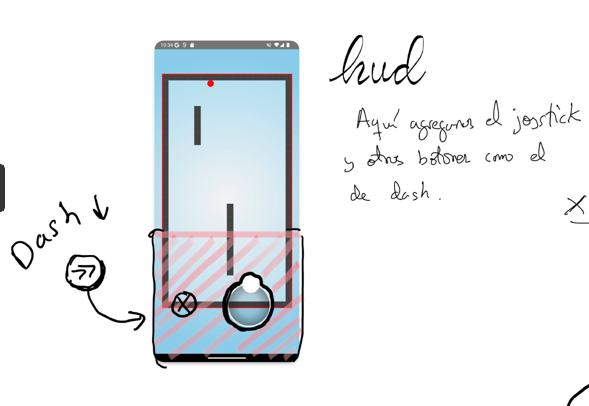 10:34 G S
hud
Aquí agregamos el joystick
y otros botones como el
de dash.
Dash ↓
X
X